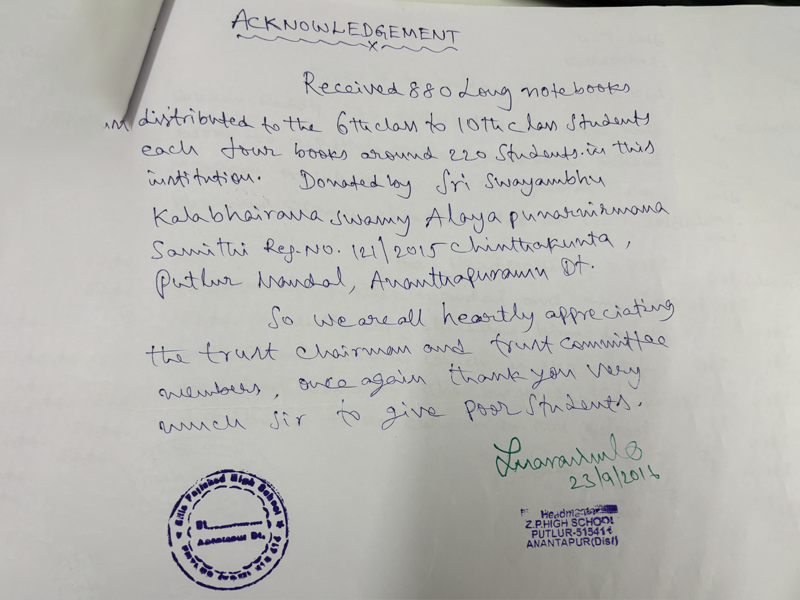 ACKNOWLEDGEMENT
Received 880 Long notebooks
distributed to the 6th class to 10th class Students
each four books around 220 Students. in this
institution. Donated by Sri Swayambhu
Kalabhairava Swamy Alaya punarnirmana
Samithi Reg. No. 121/2015 Chinthakunta,
Putlur Mandal, Ananthapuramu Dt.
So we are all heartly appreciating
the trust Chairman and trust Committee
members, once again thank you very
much Sir to give poor Students.
23/9/2016
Headmaster
Z.P.HIGH SCHOOL
PUTLUR-515414
ANANTAPUR(Dist)
Zilla Parishad High School
Dt.
Anantapur Dt.